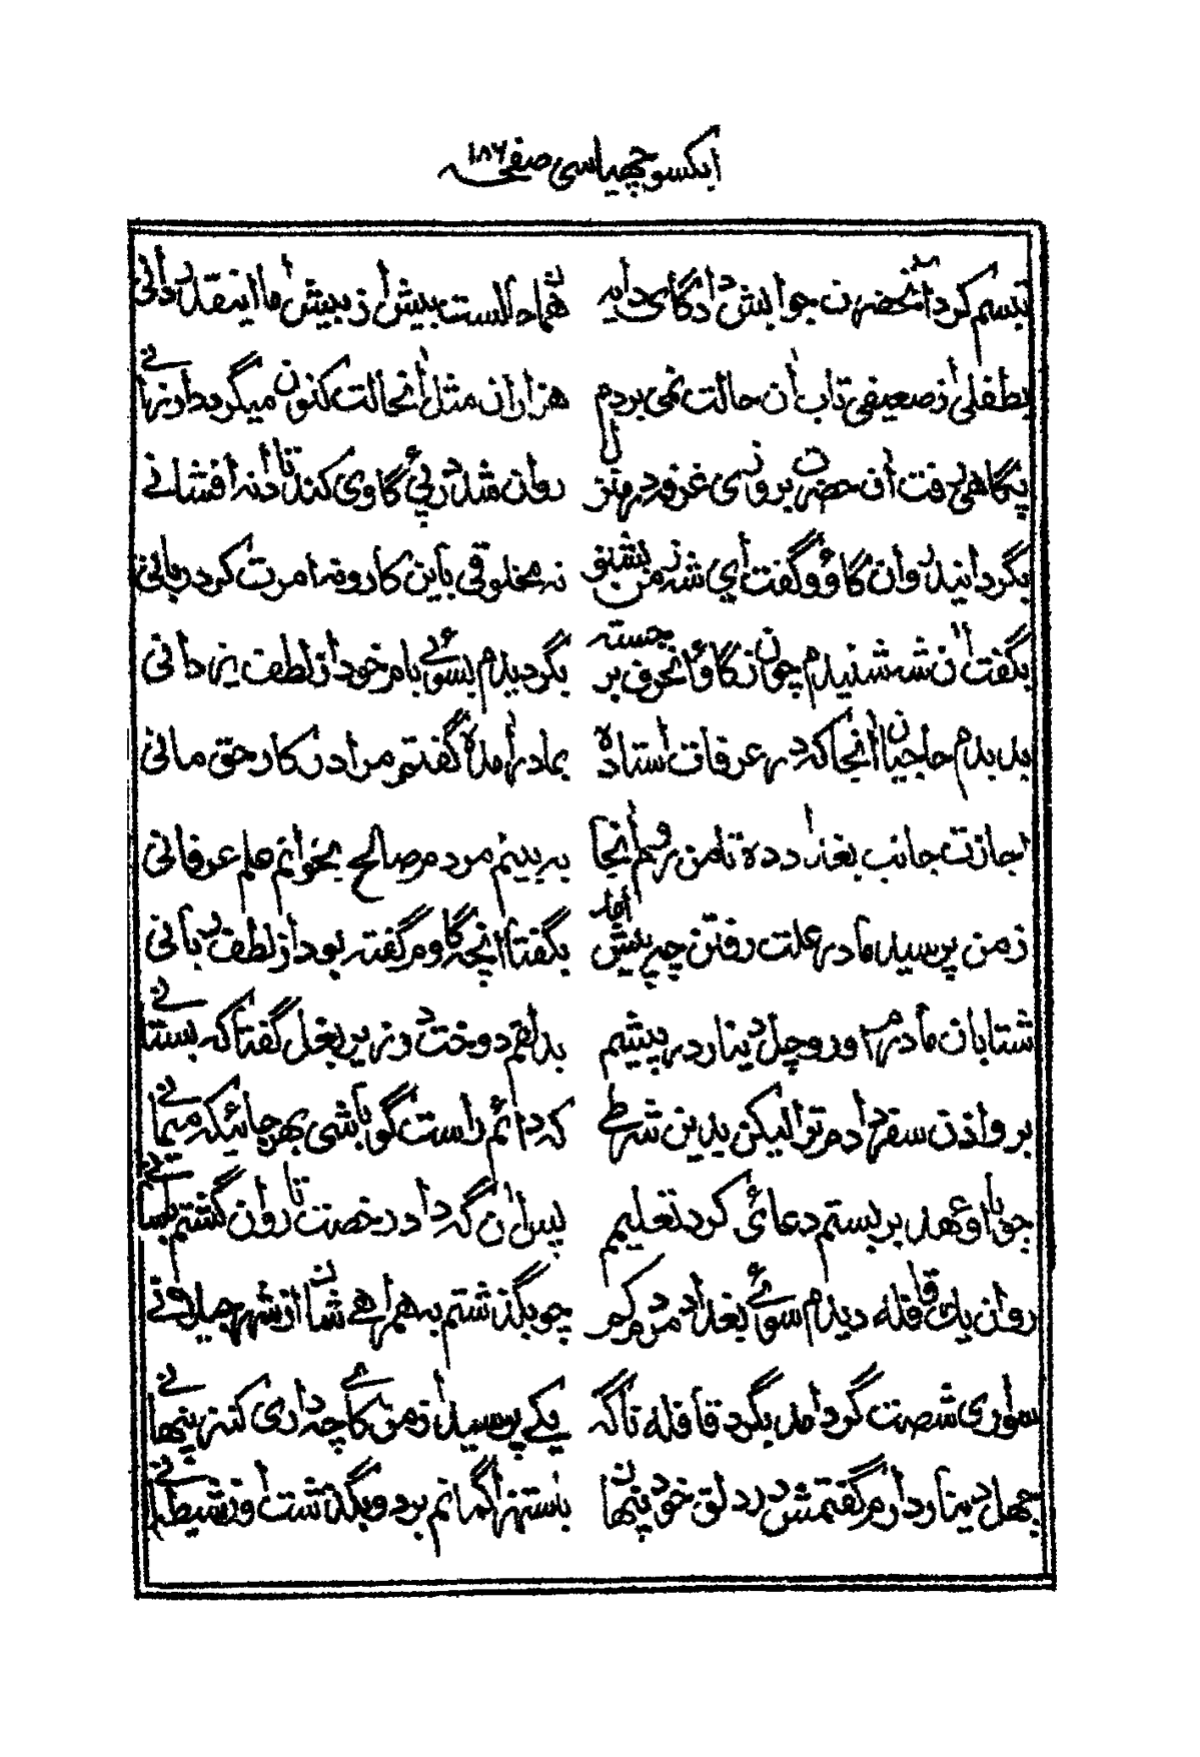 ایکسو چھیاسی صفحہ ۱۸۶
تبسم کرد آنحضرت جوابش داد کای دایه همان حالست بیش از بیش اما اینقدر دانی
بطفلی از ضعیفی تاب آن حالت نمی بردم هزاران مثل آنحالت کنون میگردد ارزانی
پگاهی رفت آن حضرت بروزی غزو در منزل روان شد در پئ گاوی کند تا دانه افشانے
بگردانید روان گاؤ و گفت ای شه ز من بشنو نه مخلوقی باین کار و نه امرت کرد ربانی
بگفت آن شه شنیدم چون ز گاؤ آنحرف برجسته بگردیدم بسوئے بام خود از لطف یزدانی
بدیدم حاجیان آنجا که در عرفات استاده بمادر آمده گفتم مرا در کار حق مانی
اجازت جانب بغداد ده تا من روم آنجا به بینم مردم صالح بخوانم علم عرفانی
ز من پرسید مادر علت رفتن چه پیش آمد بگفتا آنچه گاوم گفته بود از لطف ربانی
شتابان مادرم آورد چل دینار در پیشم بدلقم دوخت در زیر بغل گفتا که بستانے
برو اذن سفر دادم ترا لیکن بدین شرطے که دائم راست گو باشی بهر جائیکه میمانے
چو با او عهد بر بستم دعائی کرد تعلیمم پس از آن که داد رخصت تا روان گشتم
روان یک قافله دیدم سوئے بغداد من مرکم چو بگذشتم به همراهے شان از شهر جیلانے
سواری شصت گرد آمد بگرد قافله ناگه یکے پرسید از من کاے چه داری کنز پنهانے
چهل دینار دارم گفتمش در دلق خود پنهان باستهزا گمانم برد و بگذشت او